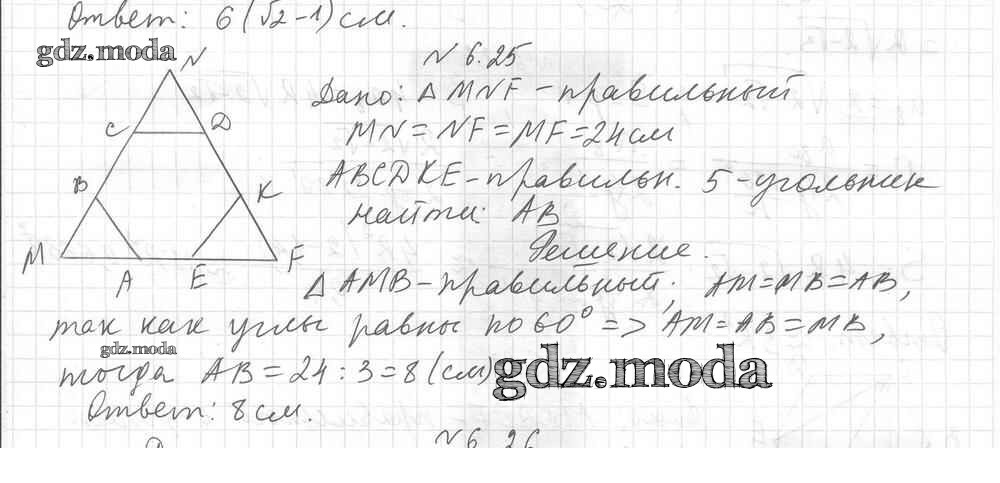 Ответ: 6(√2-1) см.
gdz.moda
№ 6.25
N
Дано: △ MNF - правильный
C D
MN = NF = MF = 24 см
B K
ABCDKE - правильн. 5-угольник
найти: AB
Решение.
M A E F
△ AMB - правильный; AM=MB=AB,
так как углы равны по 60° => AM=AB=MB,
gdz.moda
тогда AB = 24 : 3 = 8 (см)
gdz.moda
Ответ: 8 см.
№ 6.26